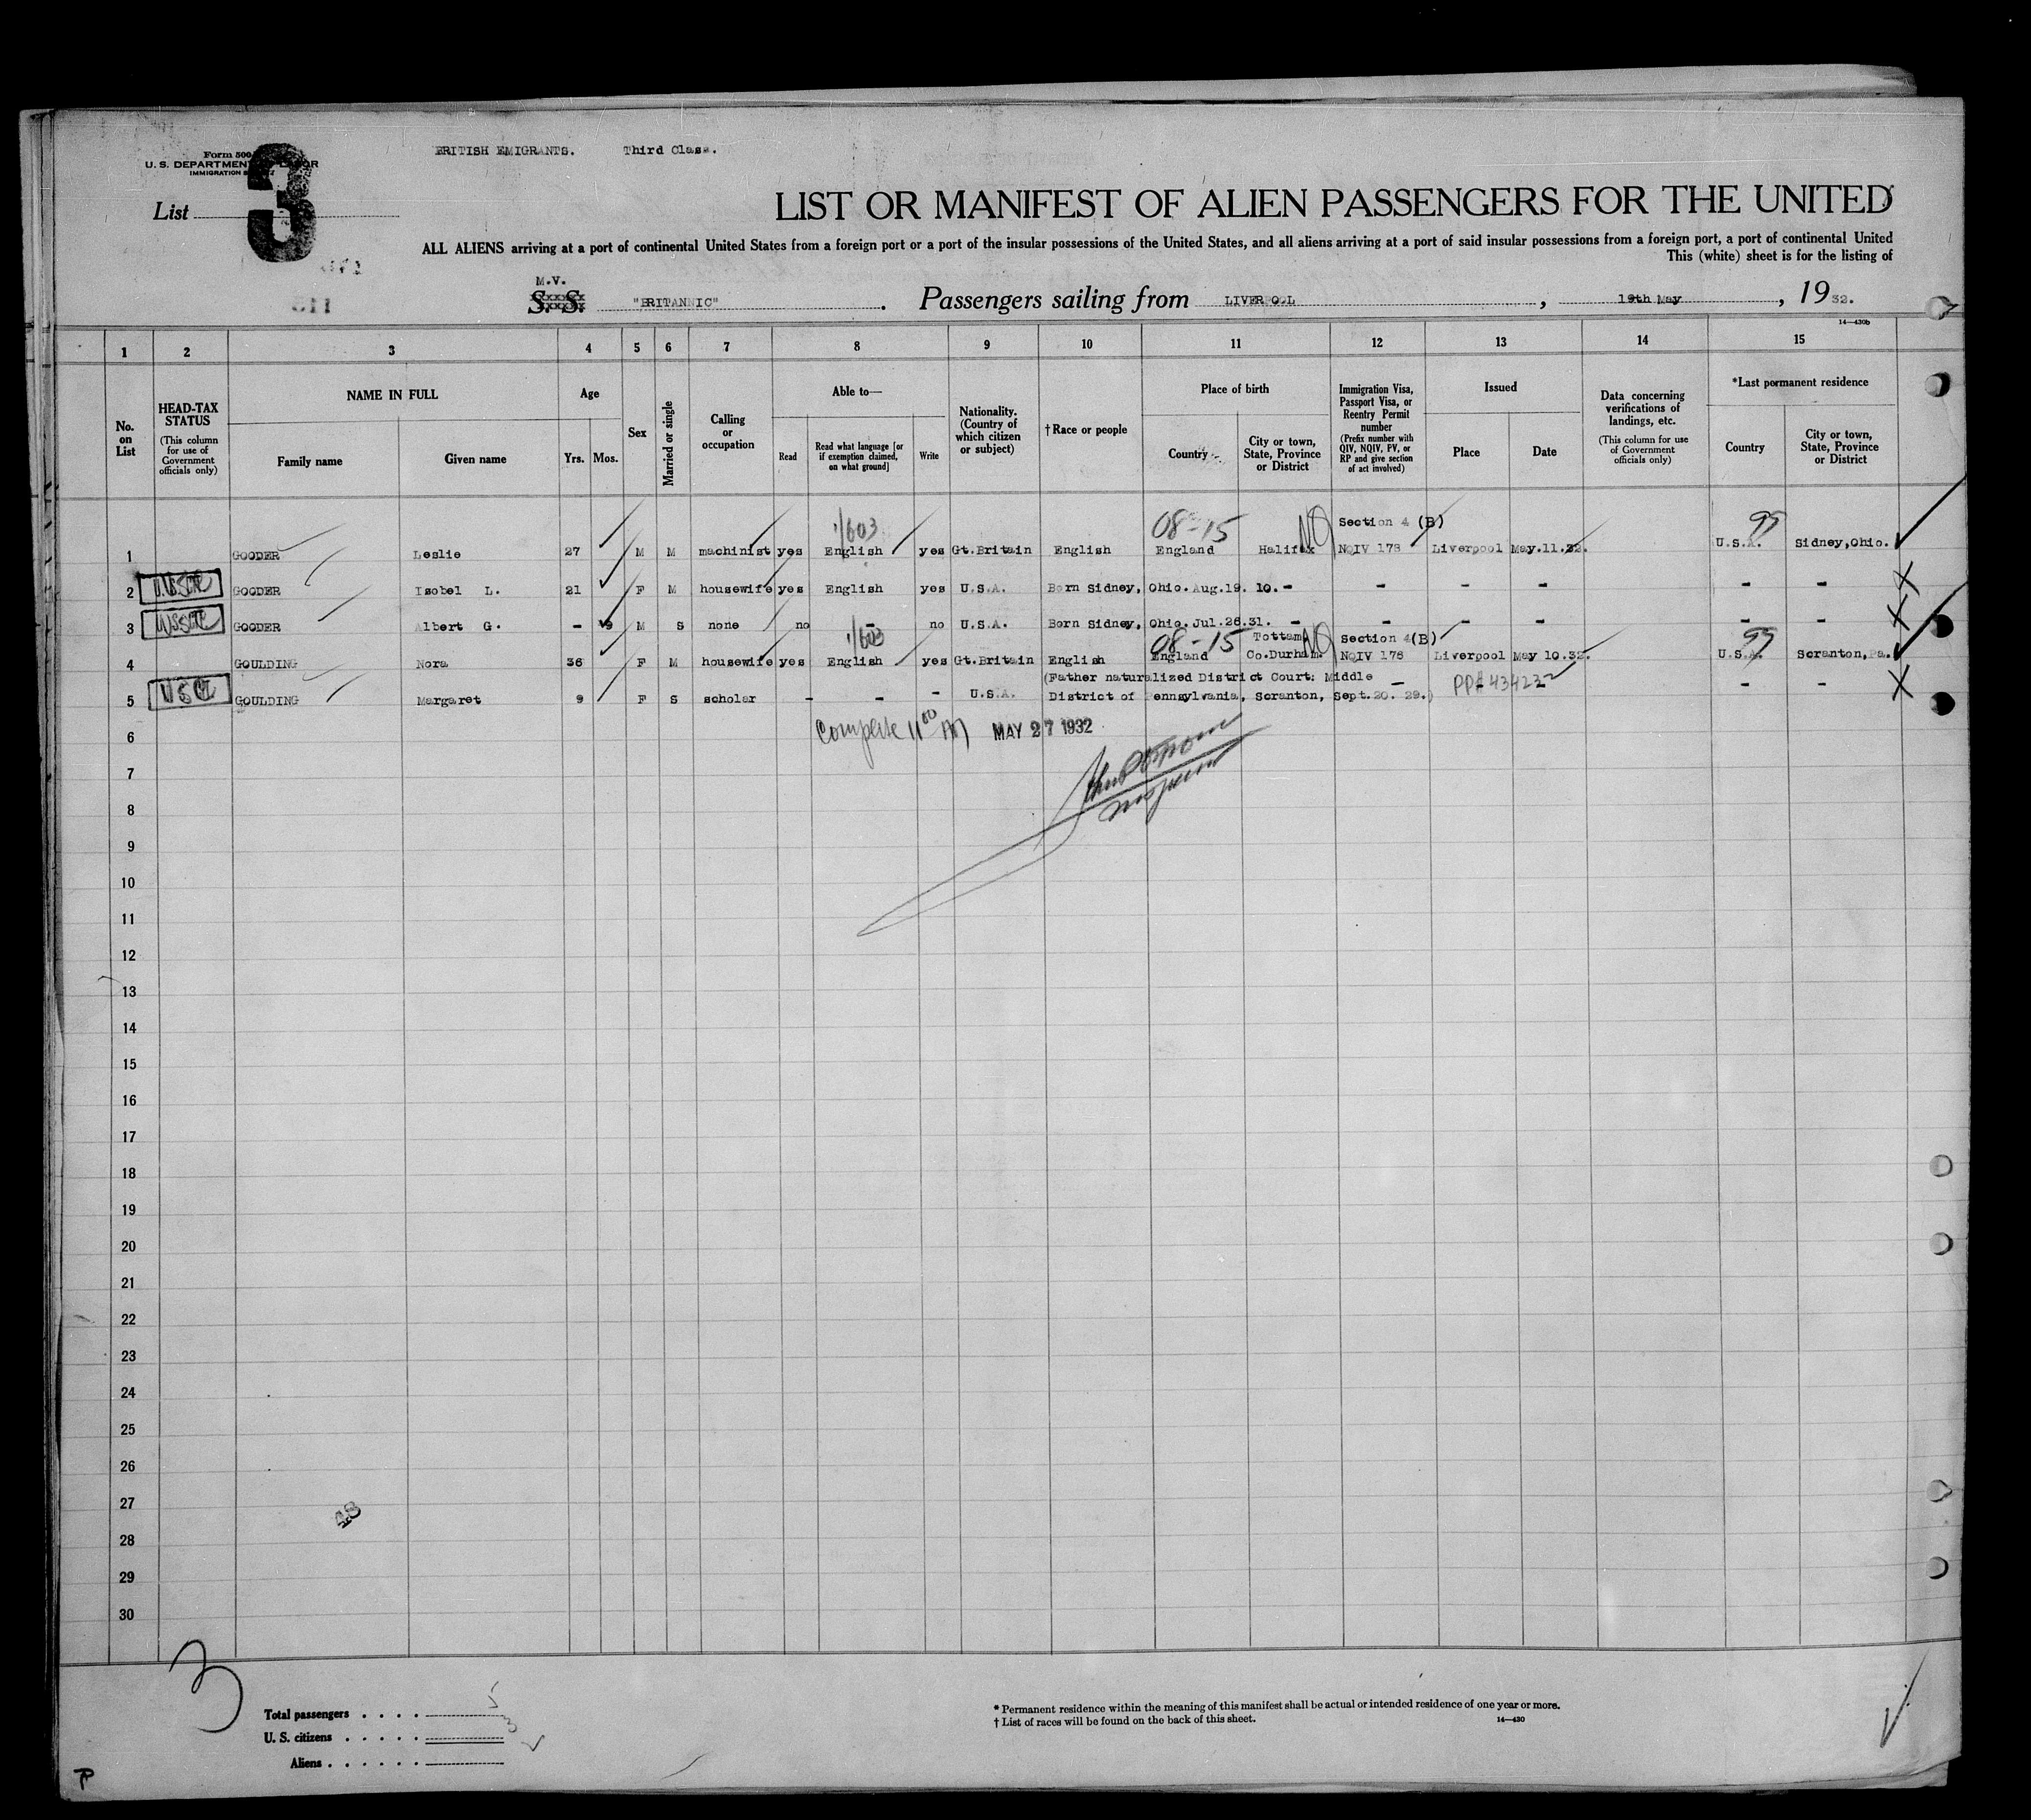 Form 500
U. S. DEPARTMENT OF LABOR
IMMIGRATION SERVICE
BRITISH EMIGRANTS. Third Class.
List 3
LIST OR MANIFEST OF ALIEN PASSENGERS FOR THE UNITED
ALL ALIENS arriving at a port of continental United States from a foreign port or a port of the insular possessions of the United States, and all aliens arriving at a port of said insular possessions from a foreign port, a port of continental United
This (white) sheet is for the listing of
M.V.
S. S. "BRITANNIC". Passengers sailing from LIVERPOOL, 19th May, 1932.
14—430b
1 2 3 4 5 6 7 8 9 10 11 12 13 14 15
No. on List
HEAD-TAX STATUS
(This column for use of Government officials only)
NAME IN FULL
Family name
Given name
Age
Yrs. Mos.
Sex
Married or single
Calling or occupation
Able to—
Read
Read what language [or if exemption claimed, on what ground]
Write
Nationality. (Country of which citizen or subject)
†Race or people
Place of birth
Country
City or town, State, Province or District
Immigration Visa, Passport Visa, or Reentry Permit number
(Prefix number with QIV, NQIV, PV, or RP and give section of act involved)
Issued
Place
Date
Data concerning verifications of landings, etc.
(This column for use of Government officials only)
*Last permanent residence
Country
City or town, State, Province or District
1/603 08-15 NQ Section 4 (B) 99
1 GOODER Leslie 27 M M machinist yes English yes Gt.Britain English England Halifax NQIV 178 Liverpool May.11.32. U.S.A. Sidney,Ohio.
2 USCit GOODER Isobel L. 21 F M housewife yes English yes U.S.A. Born Sidney, Ohio. Aug.19. 10. - - - - - -
3 USCit GOODER Albert G. - 9 M S none no - no U.S.A. Born Sidney, Ohio. Jul.26.31. - - - - - -
1/603 08-15 Tottam NQ Section 4(B) 99
4 GOULDING Nora 36 F M housewife yes English yes Gt.Britain English England Co.Durham. NQIV 176 Liverpool May 10.32. U.S.A. Scranton,Pa.
(Father naturalized District Court: Middle -
5 USCit GOULDING Margaret 9 F S scholar - - - U.S.A. District of Pennsylvania, Scranton, Sept.20. 29.) PP# 434232 - -
6 Complete 11 00 AM MAY 27 1932
7
8
9
10
11
12
13
14
15
16
17
18
19
20
21
22
23
24
25
26
27
48
28
29
30
3
Total passengers . . . . 5
U. S. citizens . . . . . 3
Aliens . . . . . .
* Permanent residence within the meaning of this manifest shall be actual or intended residence of one year or more.
† List of races will be found on the back of this sheet.
14—430